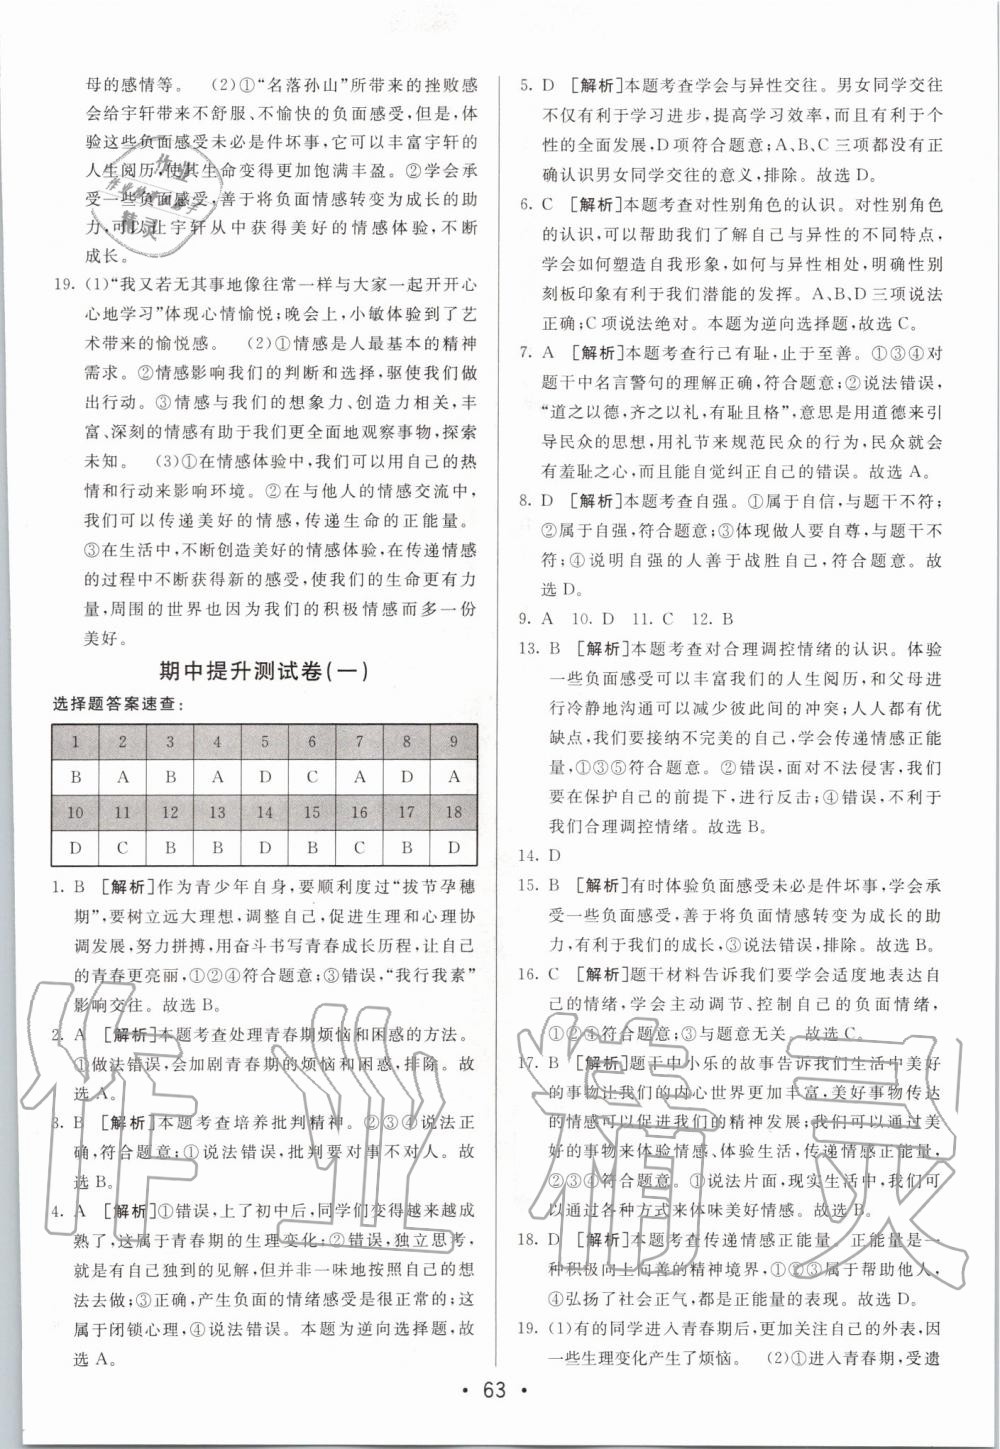 母的感情等。 (2)①“名落孙山”所带来的挫败感
会给宇轩带来不舒服、不愉快的负面感受,但是,体
验这些负面感受未必是件坏事,它可以丰富宇轩的
人生阅历,使其生命变得更加饱满丰盈。②学会承
受一些负面感受,善于将负面情感转变为成长的助
力,可以让宇轩从中获得美好的情感体验,不断
成长。
19. (1)“我又若无其事地像往常一样与大家一起开开心
心地学习”体现心情愉悦;晚会上,小敏体验到了艺
术带来的愉悦感。 (2)①情感是人最基本的精神
需求。②情感影响我们的判断和选择,驱使我们做
出行动。③情感与我们的想象力、创造力相关,丰
富、深刻的情感有助于我们更全面地观察事物,探索
未知。 (3)①在情感体验中,我们可以用自己的热
情和行动来影响环境。②在与他人的情感交流中,
我们可以传递美好的情感,传递生命的正能量。
③在生活中,不断创造美好的情感体验,在传递情感
的过程中不断获得新的感受,使我们的生命更有力
量,周围的世界也因为我们的积极情感而多一份
美好。
期中提升测试卷(一)
选择题答案速查:
1 2 3 4 5 6 7 8 9
B A B A D C A D A
10 11 12 13 14 15 16 17 18
D C B B D B C B D
1. B [解析]作为青少年自身,要顺利度过“拔节孕穗
期”,要树立远大理想,调整自己,促进生理和心理协
调发展,努力拼搏,用奋斗书写青春成长历程,让自己
的青春更亮丽,①②④符合题意;③错误,“我行我素”
影响交往。故选 B。
2. A [解析]本题考查处理青春期烦恼和困惑的方法。
①做法错误,会加剧青春期的烦恼和困惑,排除。故
选 A。
3. B [解析]本题考查培养批判精神。②③④说法正
确,符合题意;①说法错误,批判要对事不对人。故
选 B。
4. A [解析]①错误,上了初中后,同学们变得越来越成
熟了,这属于青春期的生理变化;②错误,独立思考,
就有自己独到的见解,但并非一味地按照自己的想
法去做;③正确,产生负面的情绪感受是很正常的;这
属于闭锁心理,④说法错误。本题为逆向选择题,故
选 A。
5. D [解析]本题考查学会与异性交往。男女同学交往
不仅有利于学习进步,提高学习效率,而且有利于个
性的全面发展,D项符合题意;A、B、C 三项都没有正
确认识男女同学交往的意义,排除。故选 D。
6. C [解析]本题考查对性别角色的认识。对性别角色
的认识,可以帮助我们了解自己与异性的不同特点,
学会如何塑造自我形象,如何与异性相处,明确性别
刻板印象有利于我们潜能的发挥。A、B、D 三项说法
正确;C项说法绝对。本题为逆向选择题,故选 C。
7. A [解析]本题考查行己有耻,止于至善。①③④对
题干中名言警句的理解正确,符合题意;②说法错误,
“道之以德,齐之以礼,有耻且格”,意思是用道德来引
导民众的思想,用礼节来规范民众的行为,民众就会
有羞耻之心,而且能自觉纠正自己的错误。故选 A。
8. D [解析]本题考查自强。①属于自信,与题干不符;
②属于自强,符合题意;③体现做人要自尊,与题干不
符;④说明自强的人善于战胜自己,符合题意。故
选 D。
9. A 10. D 11. C 12. B
13. B [解析]本题考查对合理调控情绪的认识。体验
一些负面感受可以丰富我们的人生阅历,和父母进
行冷静地沟通可以减少彼此间的冲突;人人都有优
缺点,我们要接纳不完美的自己,学会传递情感正能
量,①③⑤符合题意。②错误,面对不法侵害,我们
要在保护自己的前提下,进行反击;④错误,不利于
我们合理调控情绪。故选 B。
14. D
15. B [解析]有时体验负面感受未必是件坏事,学会承
受一些负面感受,善于将负面情感转变为成长的助
力,有利于我们的成长,③说法错误,排除。故选 B。
16. C [解析]题干材料告诉我们要学会适度地表达自
己的情绪,学会主动调节、控制自己的负面情绪,
①②④符合题意;③与题意无关。故选 C。
17. B [解析]题干中小乐的故事告诉我们生活中美好
的事物让我们的内心世界更加丰富,美好事物传达
的情感可以促进我们的精神发展;我们可以通过美
好的事物来体验情感、体验生活,传递情感正能量,
②③④符合题意。①说法片面,现实生活中,我们可
以通过各种方式来体味美好情感。故选 B。
18. D [解析]本题考查传递情感正能量。正能量是一
种积极向上向善的精神境界,①②③属于帮助他人,
④弘扬了社会正气,都是正能量的表现。故选 D。
19. (1)有的同学进入青春期后,更加关注自己的外表,因
一些生理变化产生了烦恼。 (2)①进入青春期,受遗
• 63 •
作业
作业检查小助手
精灵
作业精灵